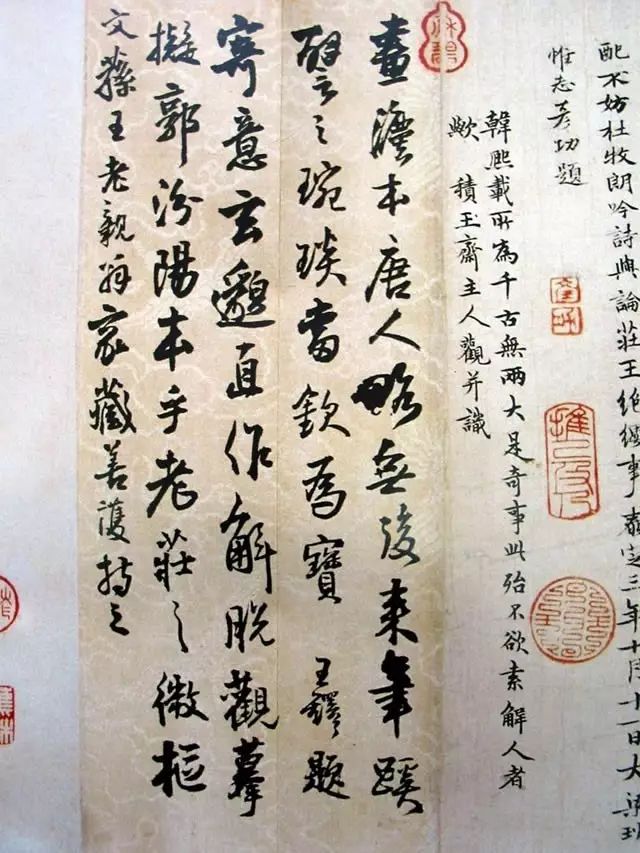 配不妨杜牧朗吟詩與論莊王絶纓事泰定三年十月十一日大梁班
惟志彥功題
韓熙載所為千古無兩大是奇事此殆不欲索解人者
歟積玉齋主人觀并識
畫灋本唐人略無後來筆蹊
譬之琬琰當欽為寶 王鐸題
寄意玄邈直作解脫觀摹
擬郭汾陽本乎老莊之微樞
文蓀王老親翁家藏善護持之